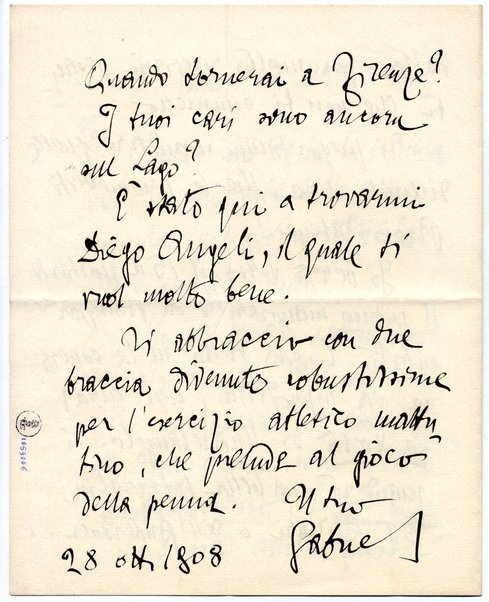 Quando tornerai a Firenze?
I tuoi cari sono ancora
sul Lago?
È stato qui a trovarmi
Diego Angeli, il quale ti
vuol molto bene.
Ti abbraccio con due
braccia divenute robustissime
per l'esercizio atletico mattu
tino, che prelude al gioco
della penna. Il tuo
Gabriel
28 ott. 1908